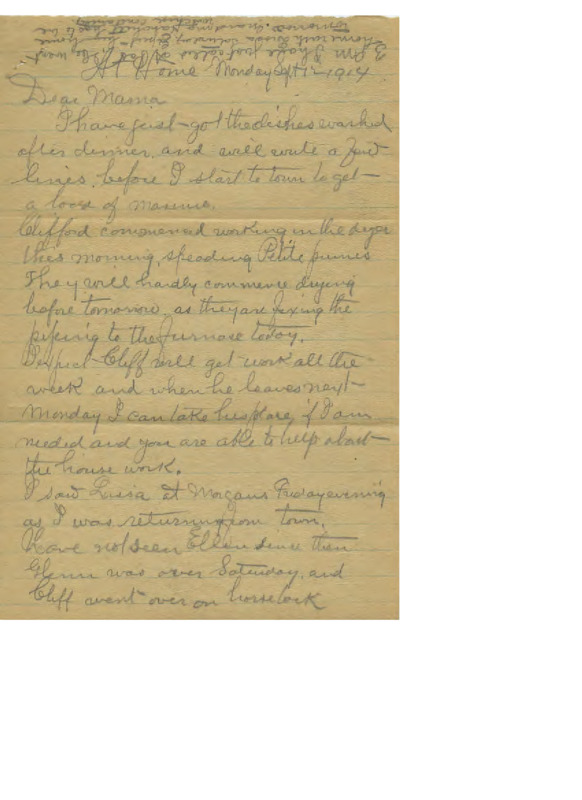 At Home Monday Sept 1 1914
Dear Mama
I have just got the dishes washed
after dinner, and will write a few
lines, before I start to town to get
a load of manure.
Clifford commenced working in the dryer
this morning, spreading Petite prunes
They will hardly commence drying
before tomorrow, as they are fixing the
piping to the furnase today.
I expect Cliff will get work all the
week and when he leaves next
Monday I can take his place, if I am
needed and you are able to help about
the house work.
I saw at Morgans Friday evening
as I was returning from town.
Have not seen Ellen since then
Glenn was over Saturday, and
Cliff went over on horseback